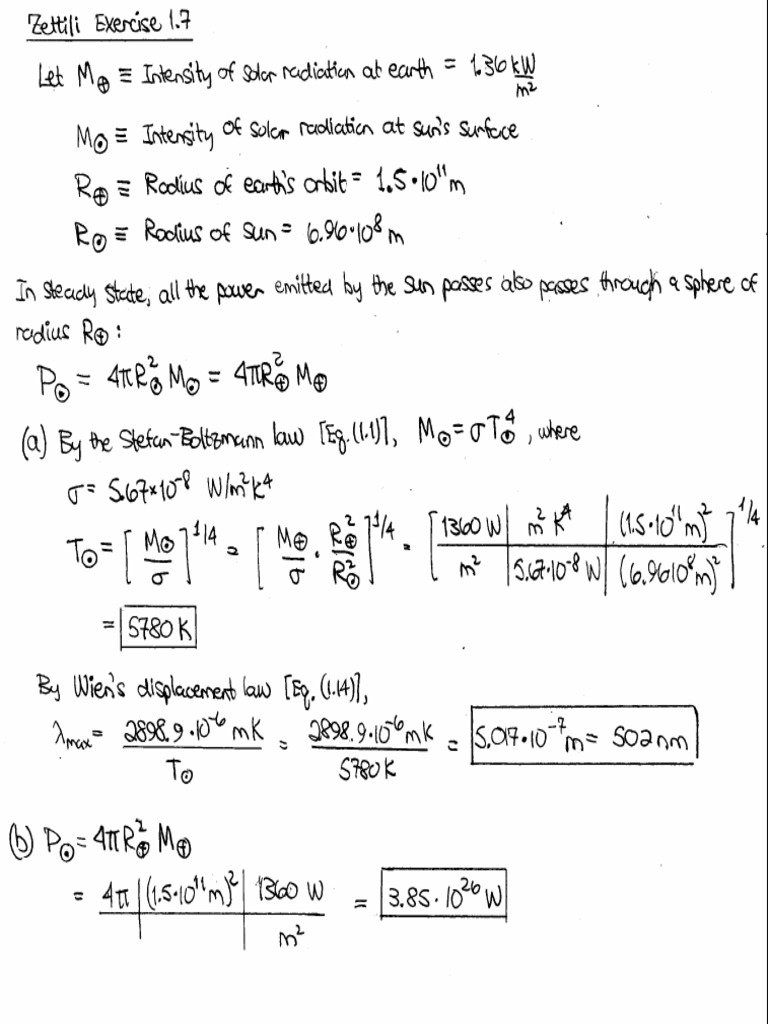 Zettili Exercise 1.7
Let M⊕ ≡ Intensity of solar radiation at earth = 1.36 kW/m²
M⊙ ≡ Intensity of solar radiation at sun's surface
R⊕ ≡ Radius of earth's orbit = 1.5·10¹¹ m
R⊙ ≡ Radius of sun = 6.96·10⁸ m
In steady state, all the power emitted by the sun passes also passes through a sphere of
radius R⊕:
P⊙ = 4πR⊙² M⊙ = 4πR⊕² M⊕
(a) By the Stefan-Boltzmann law [Eq. (1.1)], M⊙ = σT⊙⁴, where
σ = 5.67×10⁻⁸ W/m²K⁴
T⊙ = [M⊙/σ]^1/4 = [M⊕/σ · R⊕²/R⊙²]^1/4 = [1360 W/m² | m²K⁴/5.67·10⁻⁸ W | (1.5·10¹¹ m)²/(6.96 10⁸ m)²]^1/4
= 5780 K
By Wien's displacement law [Eq. (1.14)],
λmax = 2898.9·10⁻⁶ mK/T⊙ = 2898.9·10⁻⁶ mK/5780 K = 5.017·10⁻⁷ m = 502 nm
(b) P⊙ = 4πR⊕² M⊕
= 4π | (1.5·10¹¹ m)² | 1360 W/m² = 3.85·10²⁶ W